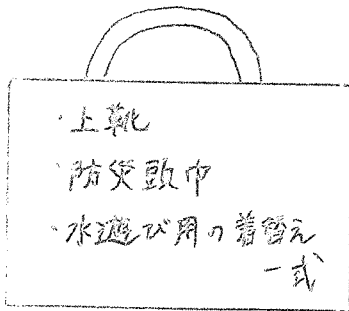 ・上靴
・防災頭巾
・水遊び用の着替え
一式